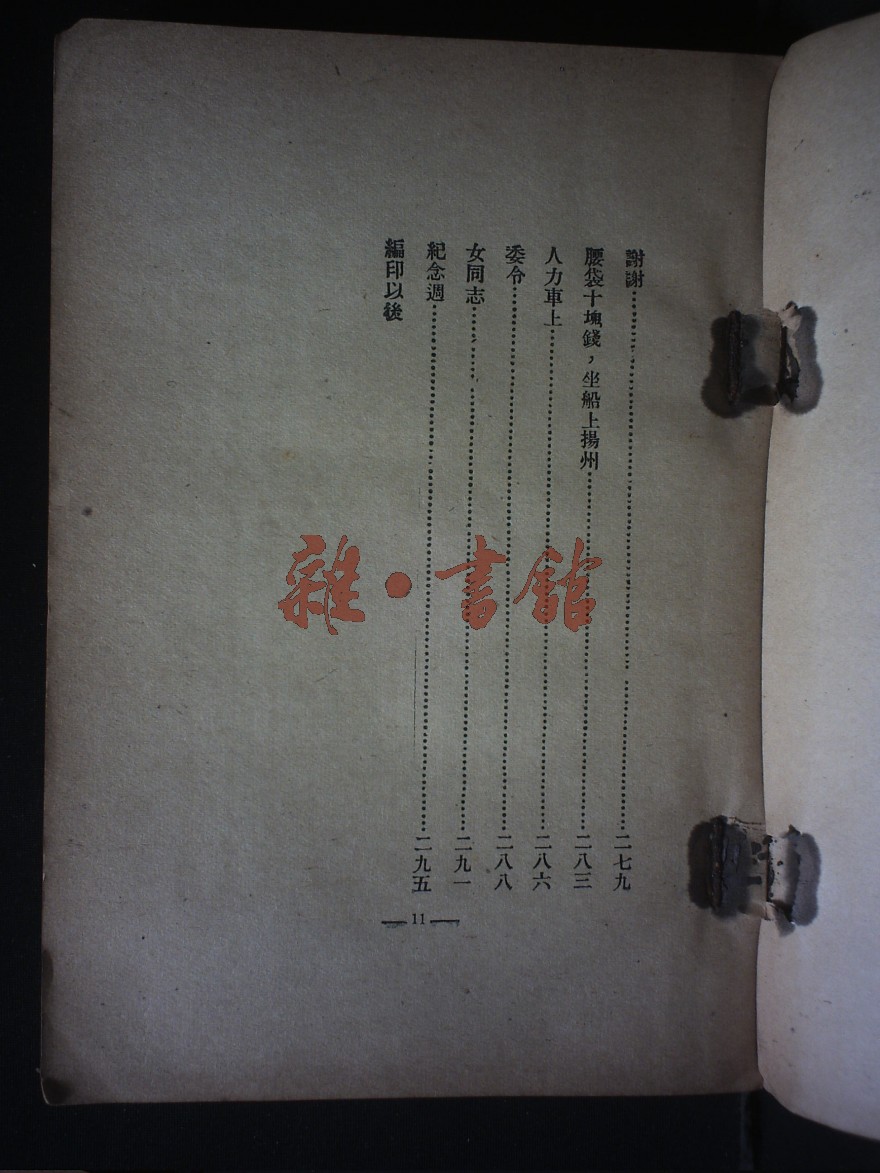 謝謝……二七九
腰袋十塊錢，坐船上揚州……二八三
人力車上……二八六
委令……二八八
女同志……二九一
紀念週……二九五
編印以後
— 11 —
雜·書館